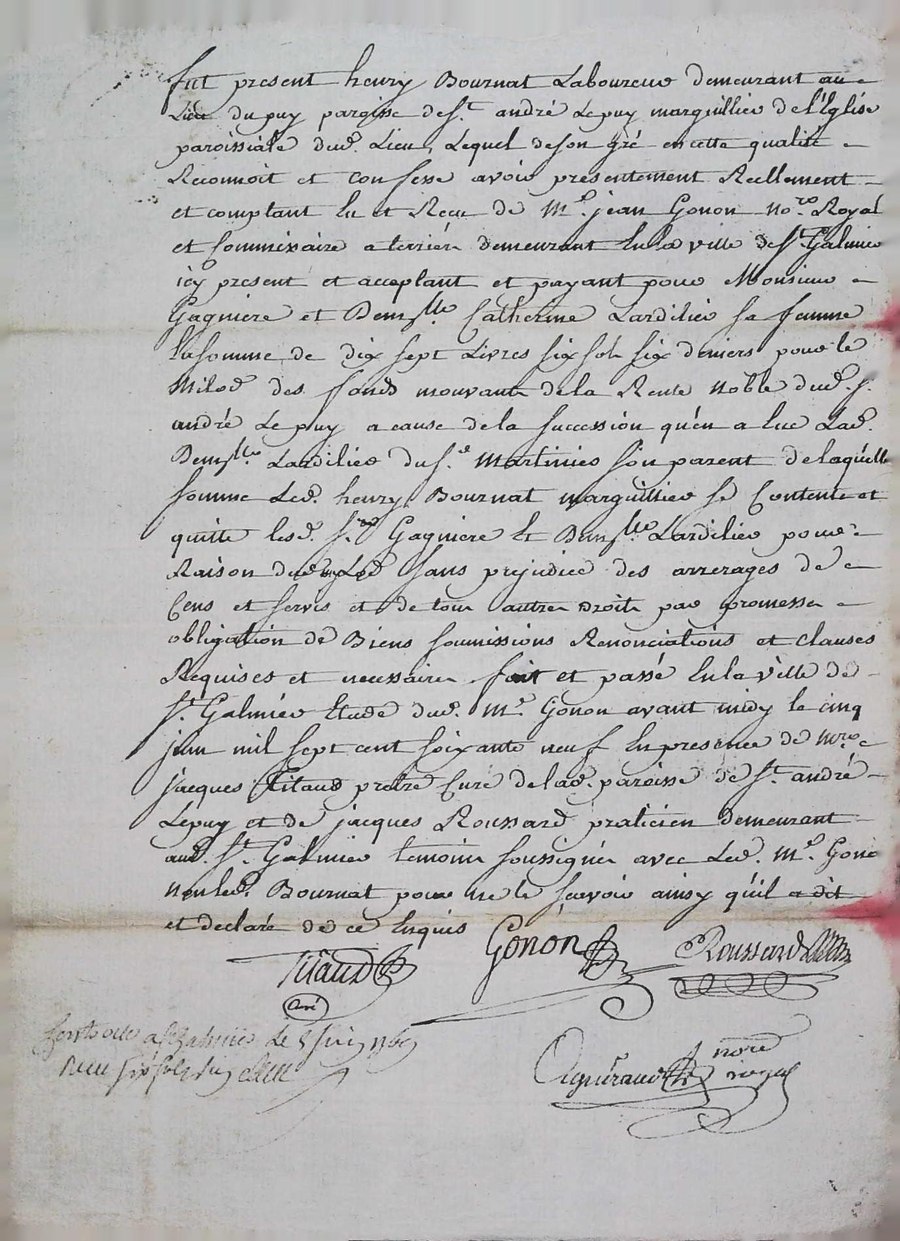 fut present henry Bournat Laboureur demeurant au
Lieu du puy paroisse de St. andré Le puy marguillier de l'Eglise
paroissiale dud. Lieu, Lequel de son gré en cette qualité
Reconnoit et confesse avoir presentement Reellement
et comptant Eu et Recu de Me. jean Gonon nore. Royal
et Commissaire a terrier demeurant En la ville de St. Galmier
icy present et acceptant et payant pour Monsieur
Gagniere et Demslle Catherine Lardilier sa femme
la somme de dix sept Livres six sols six deniers pour le
Milod des fonds mouvants de la Rente noble dud. St.
andré Le puy a cause de la succession qu'en a Eue Lad.
Demslle Lardilier du Sr. Martinier son parent de laquelle
somme Led. henry Bournat marguillier se Contente et
quitte lesd. Srs Gagniere Et Demslle Lardilier pour
Raison dud. Lod sans prejudice des arrerages de
Cens et servis et de tous autres droits par promesses
obligation de Biens soumissions Renonciations et clauses
Requises et necessaires fait et passé En la ville de
St. Galmier Etude dud. Me. Gonon avant midy le cinq
juin mil sept cent soixante neuf En presence de Mre.
jacques Titaud pretre Curé de lad. paroisse de St. andré
Le puy et de jacques Roussard praticien demeurant
aud. St. Galmier temoins soussignés avec Led. Me. Gonon
non led. Bournat pour ne le scavoir ainsy qu'il a dit
et declaré de ce Enquis
Titaud Gonon Roussard
Curé
a St Galmier le 5 juin 1769
Recu six sols six
nore
royal